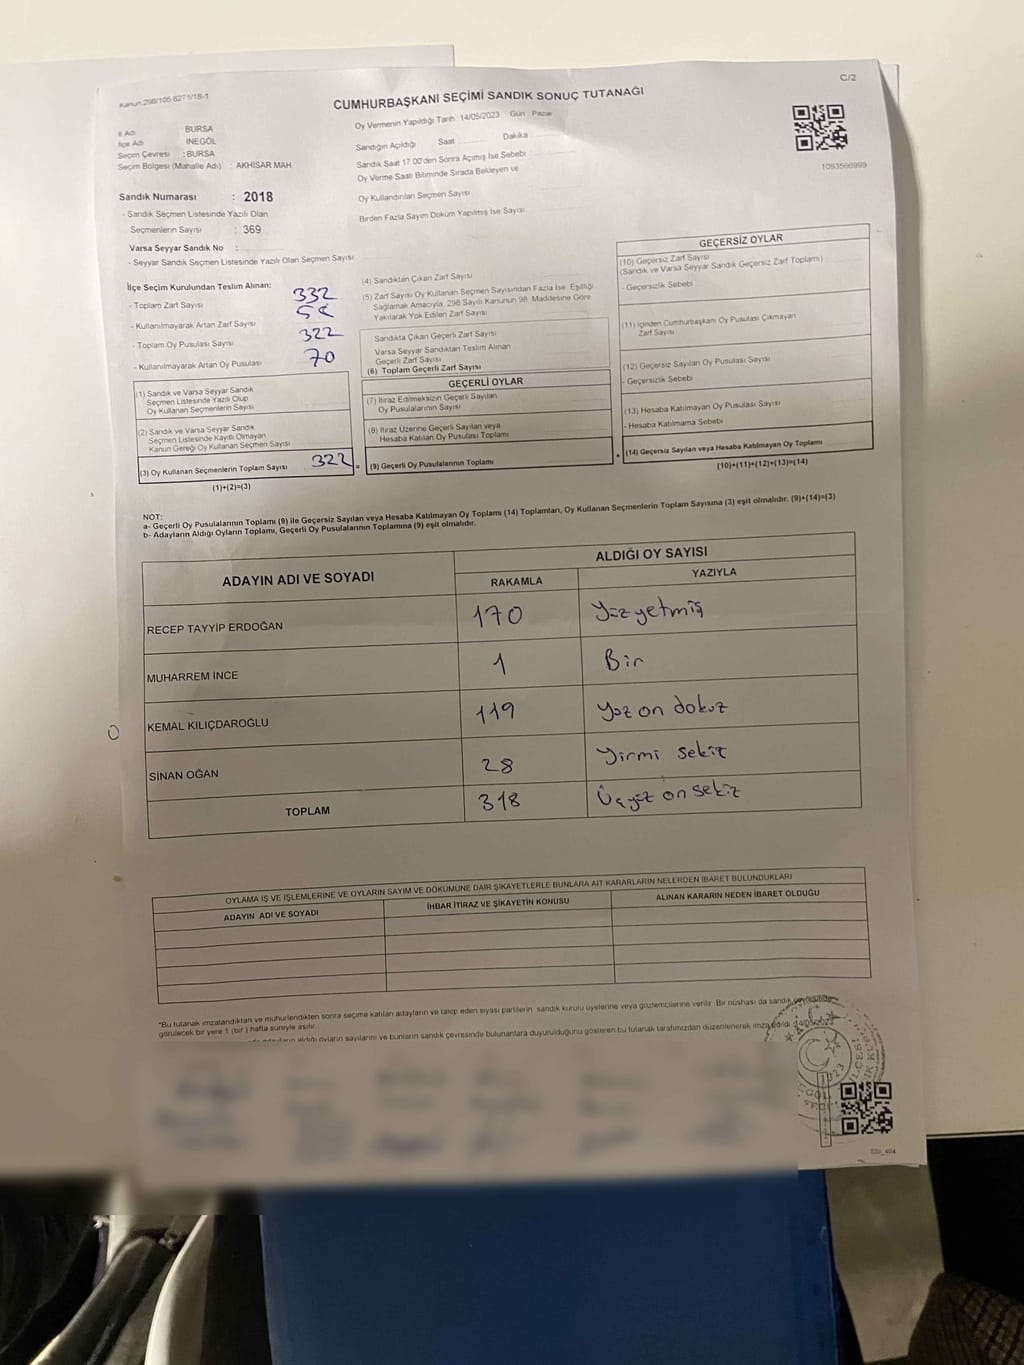 Kanun:298/105,6271/18-1
C/2
CUMHURBAŞKANI SEÇİMİ SANDIK SONUÇ TUTANAĞI
İl Adı BURSA
İlçe Adı İNEGÖL
Seçim Çevresi : BURSA
Seçim Bölgesi (Mahalle Adı) : AKHİSAR MAH.
Oy Vermenin Yapıldığı Tarih :14/05/2023 Gün : Pazar
Sandığın Açıldığı Saat Dakika
Sandık Saat 17.00'den Sonra Açımış İse Sebebi
Oy Verme Saati Bitiminde Sırada Bekleyen ve
Oy Kullandırılan Seçmen Sayısı
Birden Fazla Sayım Döküm Yapılmış İse Sayısı
1093566999
Sandık Numarası : 2018
- Sandık Seçmen Listesinde Yazılı Olan
Seçmenlerin Sayısı : 369
Varsa Seyyar Sandık No :
- Seyyar Sandık Seçmen Listesinde Yazılı Olan Seçmen Sayısı
İlçe Seçim Kurulundan Teslim Alınan:
- Toplam Zarf Sayısı 332
- Kullanılmayarak Artan Zarf Sayısı
- Toplam Oy Pusulası Sayısı 322
- Kullanılmayarak Artan Oy Pusulası 70
(1) Sandık ve Varsa Seyyar Sandık
Seçmen Listesinde Yazılı Olup
Oy Kullanan Seçmenlerin Sayısı
(2) Sandık ve Varsa Seyyar Sandık
Seçmen Listesinde Kayıtlı Olmayan
Kanun Gereği Oy Kullanan Seçmen Sayısı
(3) Oy Kullanan Seçmenlerin Toplam Sayısı 322 =
(1)+(2)=(3)
(4) Sandıktan Çıkan Zarf Sayısı
(5) Zarf Sayısı Oy Kullanan Seçmen Sayısından Fazla İse, Eşitliği
Sağlamak Amacıyla, 298 Sayılı Kanunun 98. Maddesine Göre
Yakılarak Yok Edilen Zarf Sayısı
Sandıkta Çıkan Geçerli Zarf Sayısı
Varsa Seyyar Sandıktan Teslim Alınan
Geçerli Zarf Sayısı
(6) Toplam Geçerli Zarf Sayısı
GEÇERLİ OYLAR
(7) İtiraz Edilmeksizin Geçerli Sayılan
Oy Pusulalarının Sayısı
(8) İtiraz Üzerine Geçerli Sayılan veya
Hesaba Katılan Oy Pusulası Toplamı
(9) Geçerli Oy Pusulalarının Toplamı +
GEÇERSİZ OYLAR
(10) Geçersiz Zarf Sayısı
(Sandık ve Varsa Seyyar Sandık Geçersiz Zarf Toplamı)
- Geçersizlik Sebebi
(11) İçinden Cumhurbaşkanı Oy Pusulası Çıkmayan
Zarf Sayısı
(12) Geçersiz Sayılan Oy Pusulası Sayısı
- Geçersizlik Sebebi
(13) Hesaba Katılmayan Oy Pusulası Sayısı
- Hesaba Katılmama Sebebi
(14) Geçersiz Sayılan veya Hesaba Katılmayan Oy Toplamı
(10)+(11)+(12)+(13)=(14)
NOT:
a- Geçerli Oy Pusulalarının Toplamı (9) ile Geçersiz Sayılan veya Hesaba Katılmayan Oy Toplamı (14) Toplamları, Oy Kullanan Seçmenlerin Toplam Sayısına (3) eşit olmalıdır. (9)+(14)=(3)
b- Adayların Aldığı Oyların Toplamı, Geçerli Oy Pusulalarının Toplamına (9) eşit olmalıdır.
ADAYIN ADI VE SOYADI
ALDIĞI OY SAYISI
RAKAMLA YAZIYLA
RECEP TAYYİP ERDOĞAN 170 Yüz yetmiş
MUHARREM İNCE 1 Bir
KEMAL KILIÇDAROĞLU 119 Yüz on dokuz
SİNAN OĞAN 28 Yirmi sekiz
TOPLAM 318 Üçyüz on sekiz
OYLAMA İŞ VE İŞLEMLERİNE VE OYLARIN SAYIM VE DÖKÜMÜNE DAİR ŞİKAYETLERLE BUNLARA AİT KARARLARIN NELERDEN İBARET BULUNDUKLARI
ADAYIN ADI VE SOYADI
İHBAR İTİRAZ VE ŞİKAYETİN KONUSU
ALINAN KARARIN NEDEN İBARET OLDUĞU
*Bu tutanak imzalandıktan ve mühürlendikten sonra seçime katılan adayların ve talep eden siyasi partilerin sandık kurulu üyelerine veya gözlemcilerine verilir. Bir nüshası da sandık
görülecek bir yere 1 (bir) hafta süreyle asılır.
aldığı oyların sayılarını ve bunların sandık çevresinde bulunanlara duyurulduğunu gösteren bu tutanak tarafımızdan düzenlenerek